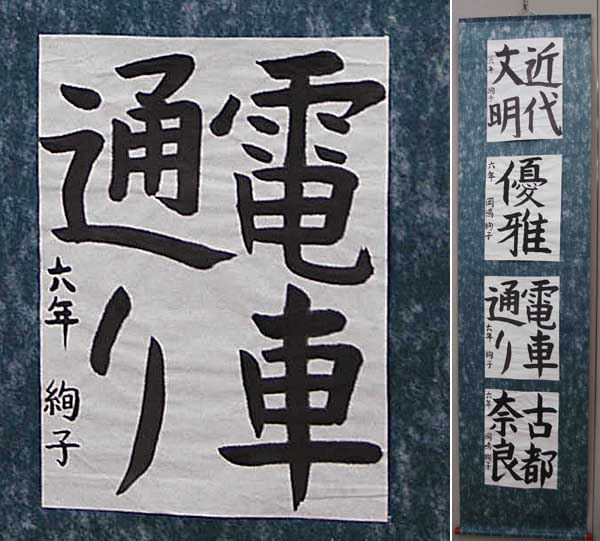 電車
通り
六年 絢子
近代
文明
六年 絢子
優雅
六年 岡嶋絢子
電車
通り
六年 絢子
古都
奈良
六年 岡嶋絢子